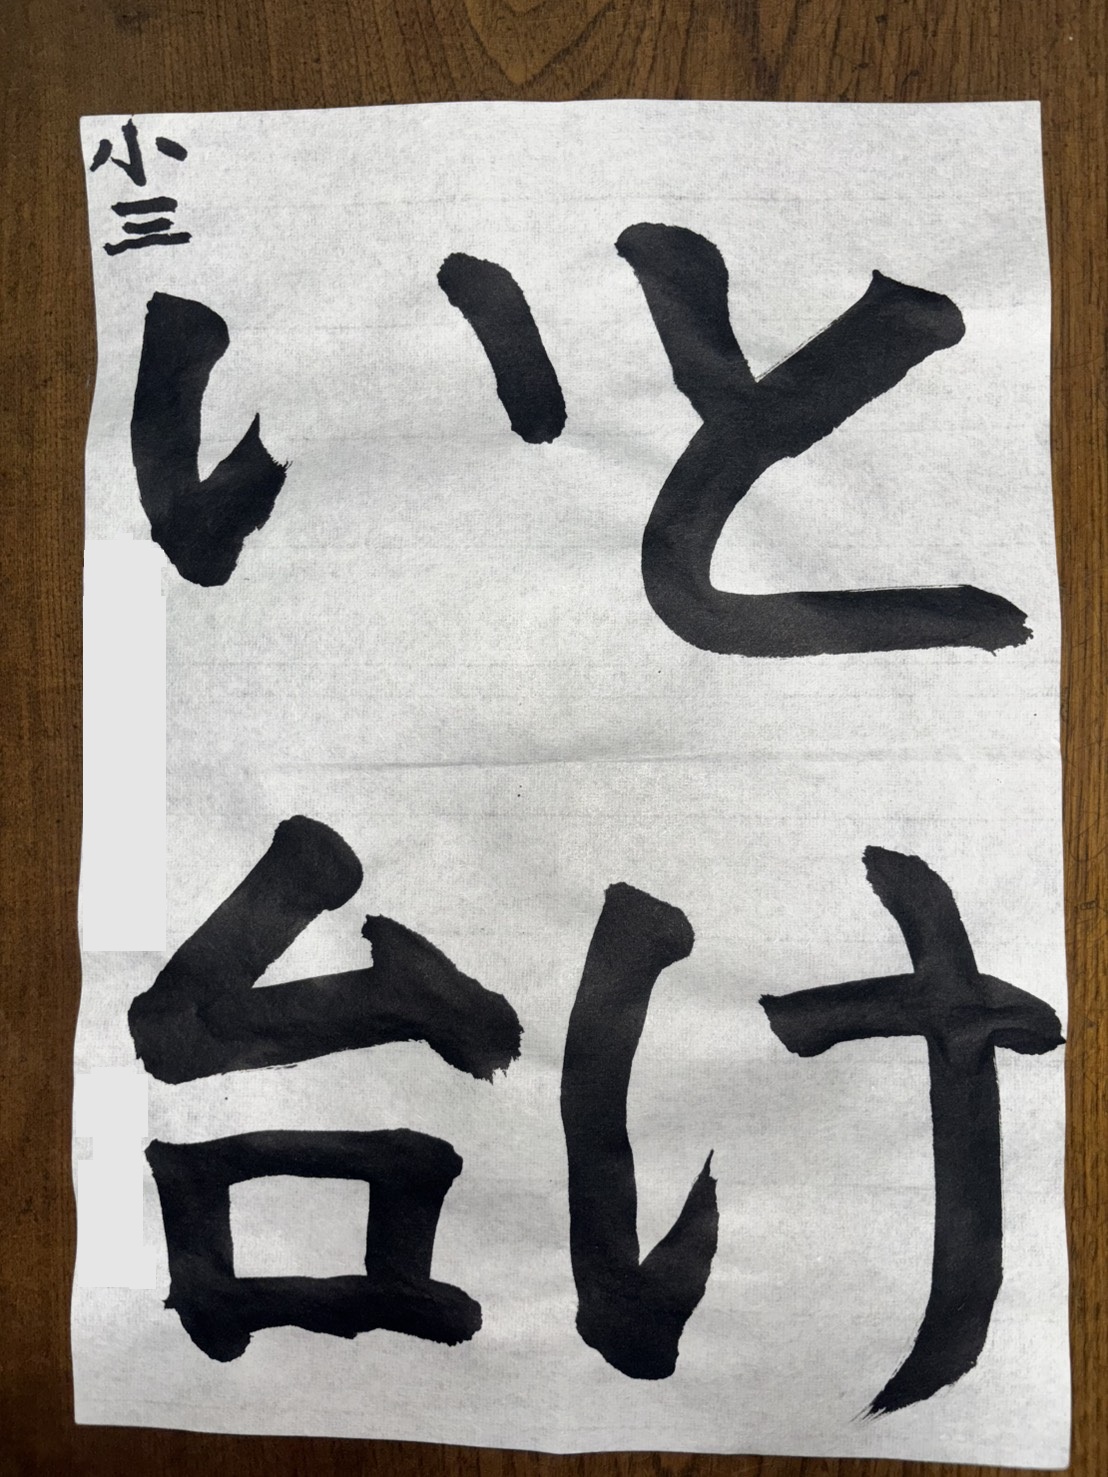 とけ
い台
小三